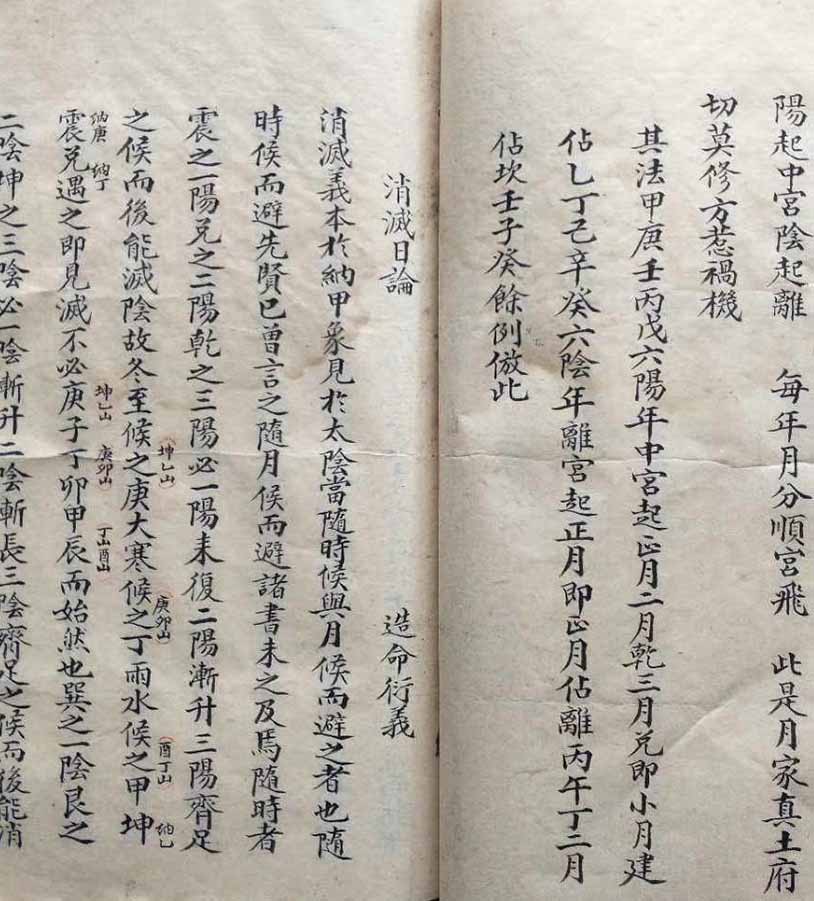 陽起中宮陰起離 每年月分順宮飛 此是月家真土府
切莫修方惹禍機
其法甲庚壬丙戊六陽年中宮起正月二月乾三月兌即小月建
佔乙丁己辛癸六陰年離宮起正月即正月佔離丙午丁二月
佔坎壬子癸餘例倣此
消滅日論 造命衍義
消滅義本於納甲象見於太陰當隨時候與月候而避之者也隨
時候而避先賢已曾言之隨月候而避諸書未之及焉隨時者
震之一陽兌之二陽乾之三陽必一陽來復二陽漸升三陽齊足
坤乙山 庚卯山 酉丁山 納乙
之候而後能滅陰故冬至候之庚大寒候之丁雨水候之甲坤
納庚 納丁 坤乙山 庚卯山 丁山酉山
震兌遇之即見滅不必庚子丁卯甲辰而始然也巽之一陰艮之
二陰坤之三陰必一陰漸升二陰漸長三陰齊足之候而後能消